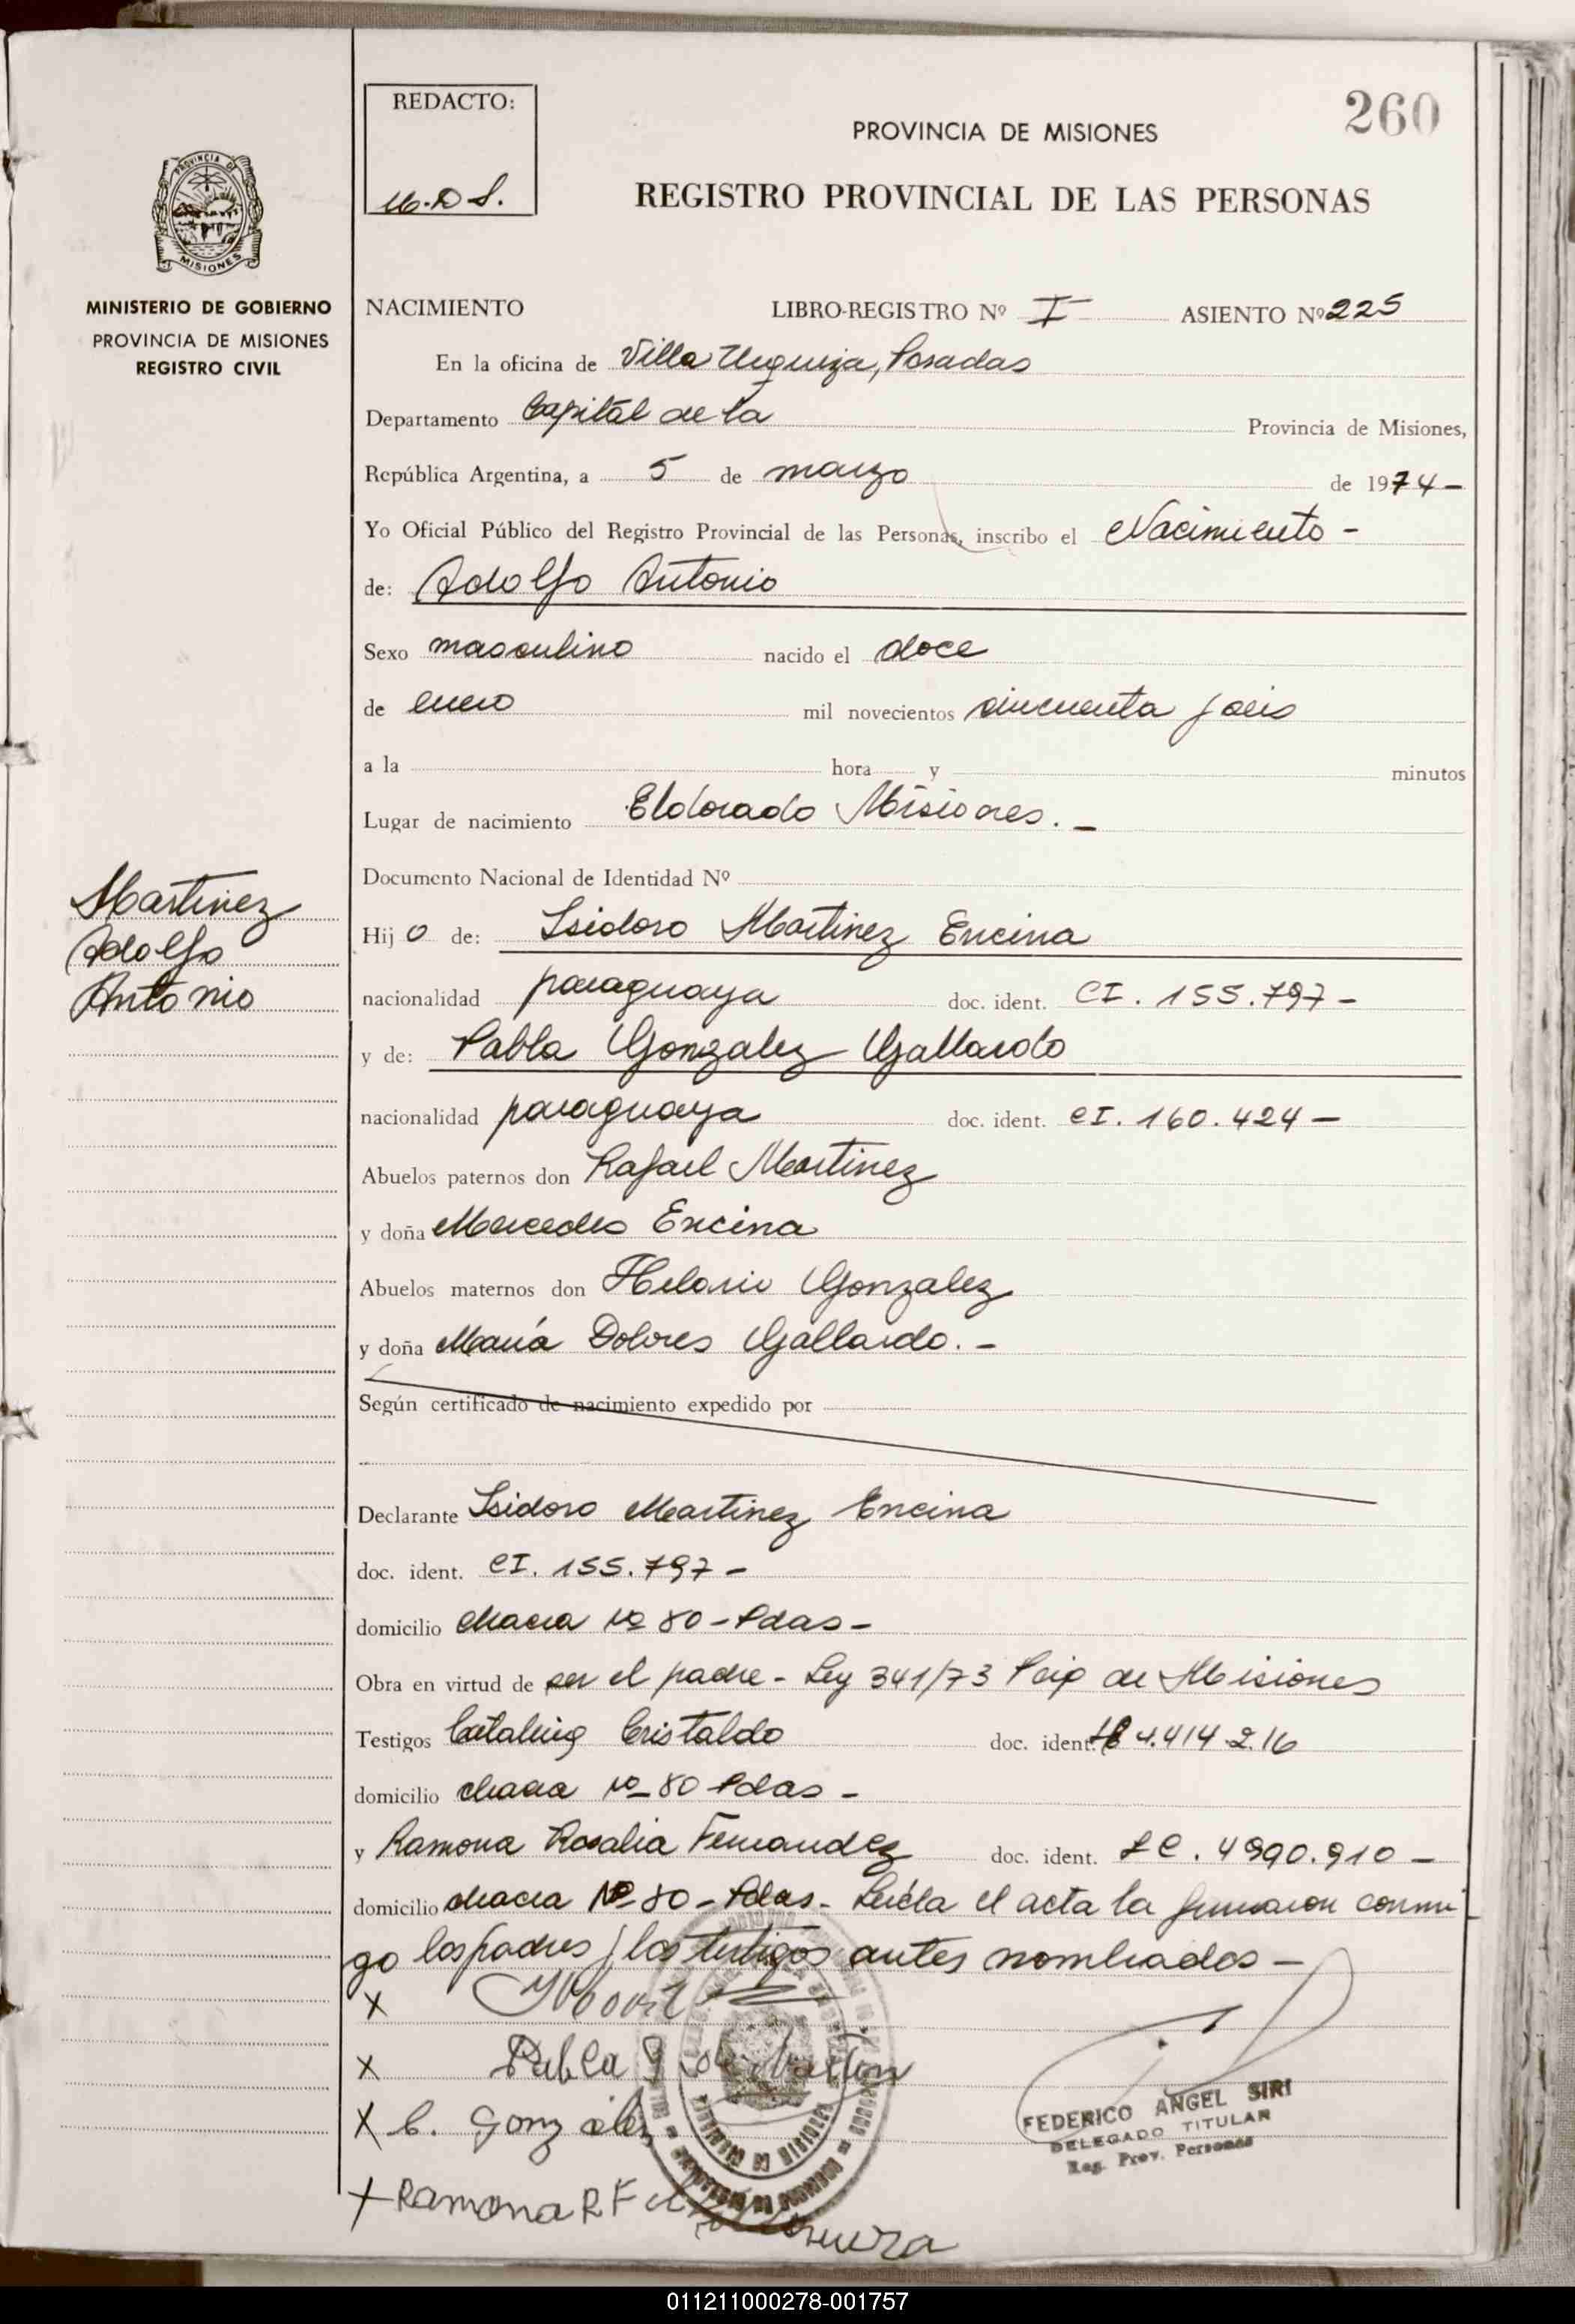 REDACTO:
260
PROVINCIA DE MISIONES
REGISTRO PROVINCIAL DE LAS PERSONAS
PROVINCIA DE
MISIONES
MINISTERIO DE GOBIERNO
PROVINCIA DE MISIONES
REGISTRO CIVIL
NACIMIENTO LIBRO-REGISTRO Nº I ASIENTO Nº 225
En la oficina de Villa Urquiza, Posadas
Departamento Capital de la Provincia de Misiones,
República Argentina, a 5 de marzo de 1974-
Yo Oficial Público del Registro Provincial de las Personas, inscribo el Nacimiento -
de: Adolfo Antonio
Sexo masculino nacido el doce
de enero mil novecientos cincuenta y seis
a la hora y minutos
Lugar de nacimiento Eldorado Misiones. -
Documento Nacional de Identidad Nº
Martinez
Adolfo
Antonio
Hijo de: Isidoro Martinez Encina
nacionalidad paraguaya doc. ident. CI. 155.797-
y de: Pabla Gonzalez Gallardo
nacionalidad paraguaya doc. ident. CI. 160.424-
Abuelos paternos don Rafael Martinez
y doña Mercedes Encina
Abuelos maternos don Helario Gonzalez
y doña María Dolores Gallardo. -
Según certificado de nacimiento expedido por
Declarante Isidoro Martinez Encina
doc. ident. CI. 155.797-
domicilio chacra Nº 80 - Pdas -
Obra en virtud de ser el padre - Ley 341/73 Pcia de Misiones
Testigos Catalina Cristaldo doc. ident. 4.414.216
domicilio chacra Nº 80 Pdas -
y Ramona Rosalia Fernandez doc. ident. LC. 4990.910 -
domicilio chacra Nº 80 - Pdas - Leída el acta la firmaron conmi
go los padres y los testigos antes nombrados -
X
X Pabla G de Martin
X C. Gonzalez
X Ramona R F de
FEDERICO ANGEL SIRI
DELEGADO TITULAR
Reg. Prov. Personas
011211000278-001757